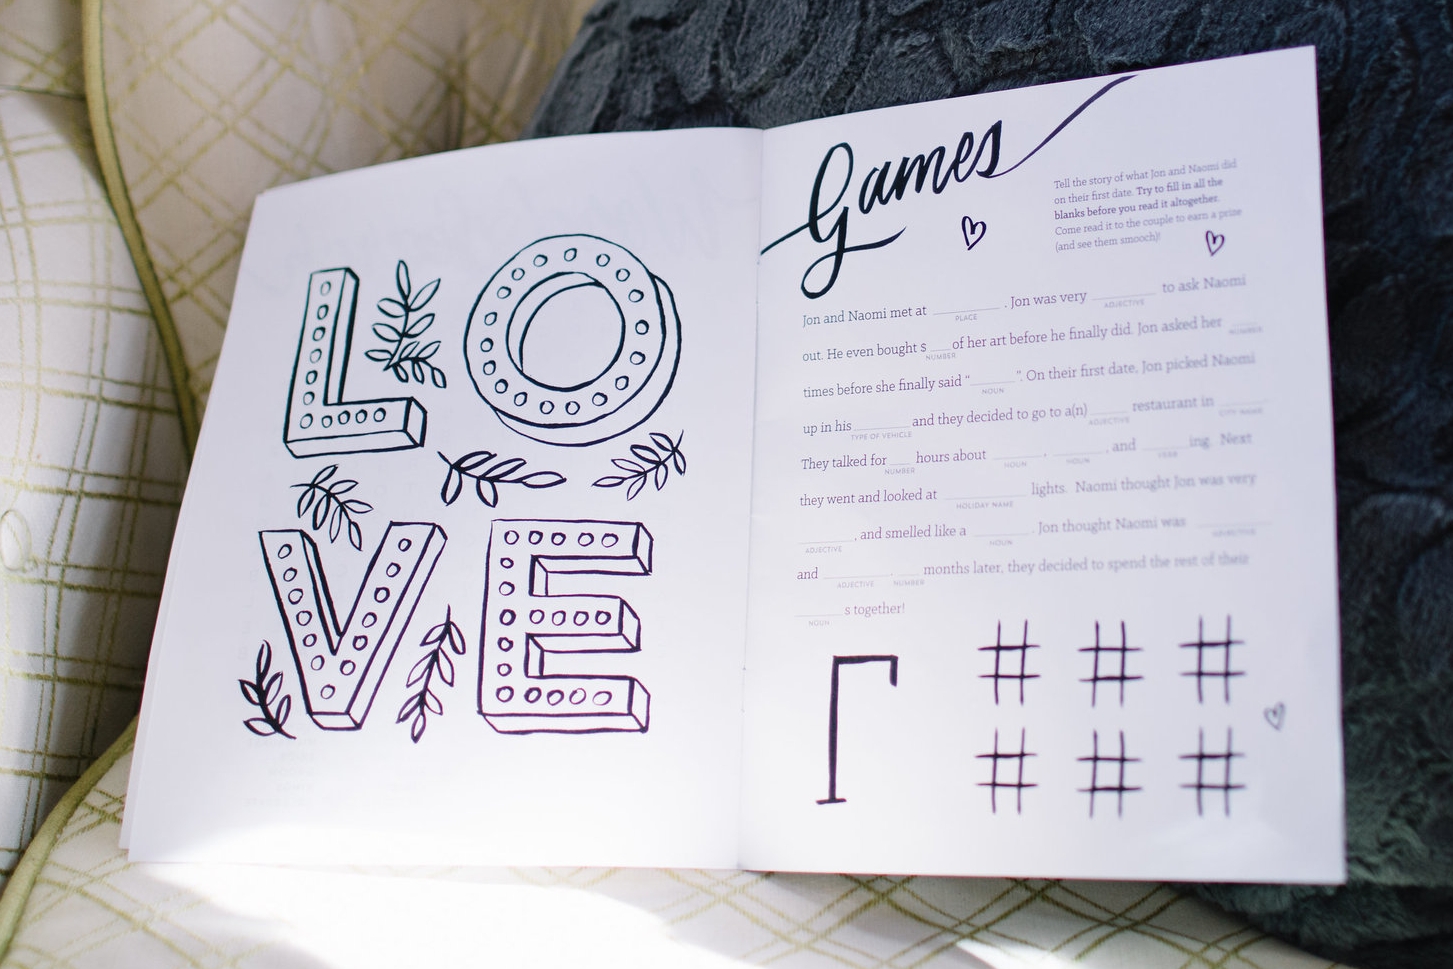 LO
VE
Games
Tell the story of what Jon and Naomi did
on their first date. Try to fill in all the
blanks before you read it altogether.
Come read it to the couple to earn a prize
(and see them smooch)!
Jon and Naomi met at ________ . Jon was very ________ to ask Naomi
PLACE ADJECTIVE
out. He even bought $ ___ of her art before he finally did. Jon asked her ___
NUMBER NUMBER
times before she finally said “______”. On their first date, Jon picked Naomi
NOUN
up in his _______ and they decided to go to a(n) _____ restaurant in ______
TYPE OF VEHICLE ADJECTIVE CITY NAME
They talked for ___ hours about ______, _____, and _____ing. Next
NUMBER NOUN NOUN VERB
they went and looked at __________ lights. Naomi thought Jon was very
HOLIDAY NAME
_______, and smelled like a _______. Jon thought Naomi was ________
ADJECTIVE NOUN ADJECTIVE
and ________. ___ months later, they decided to spend the rest of their
ADJECTIVE NUMBER
______s together!
NOUN